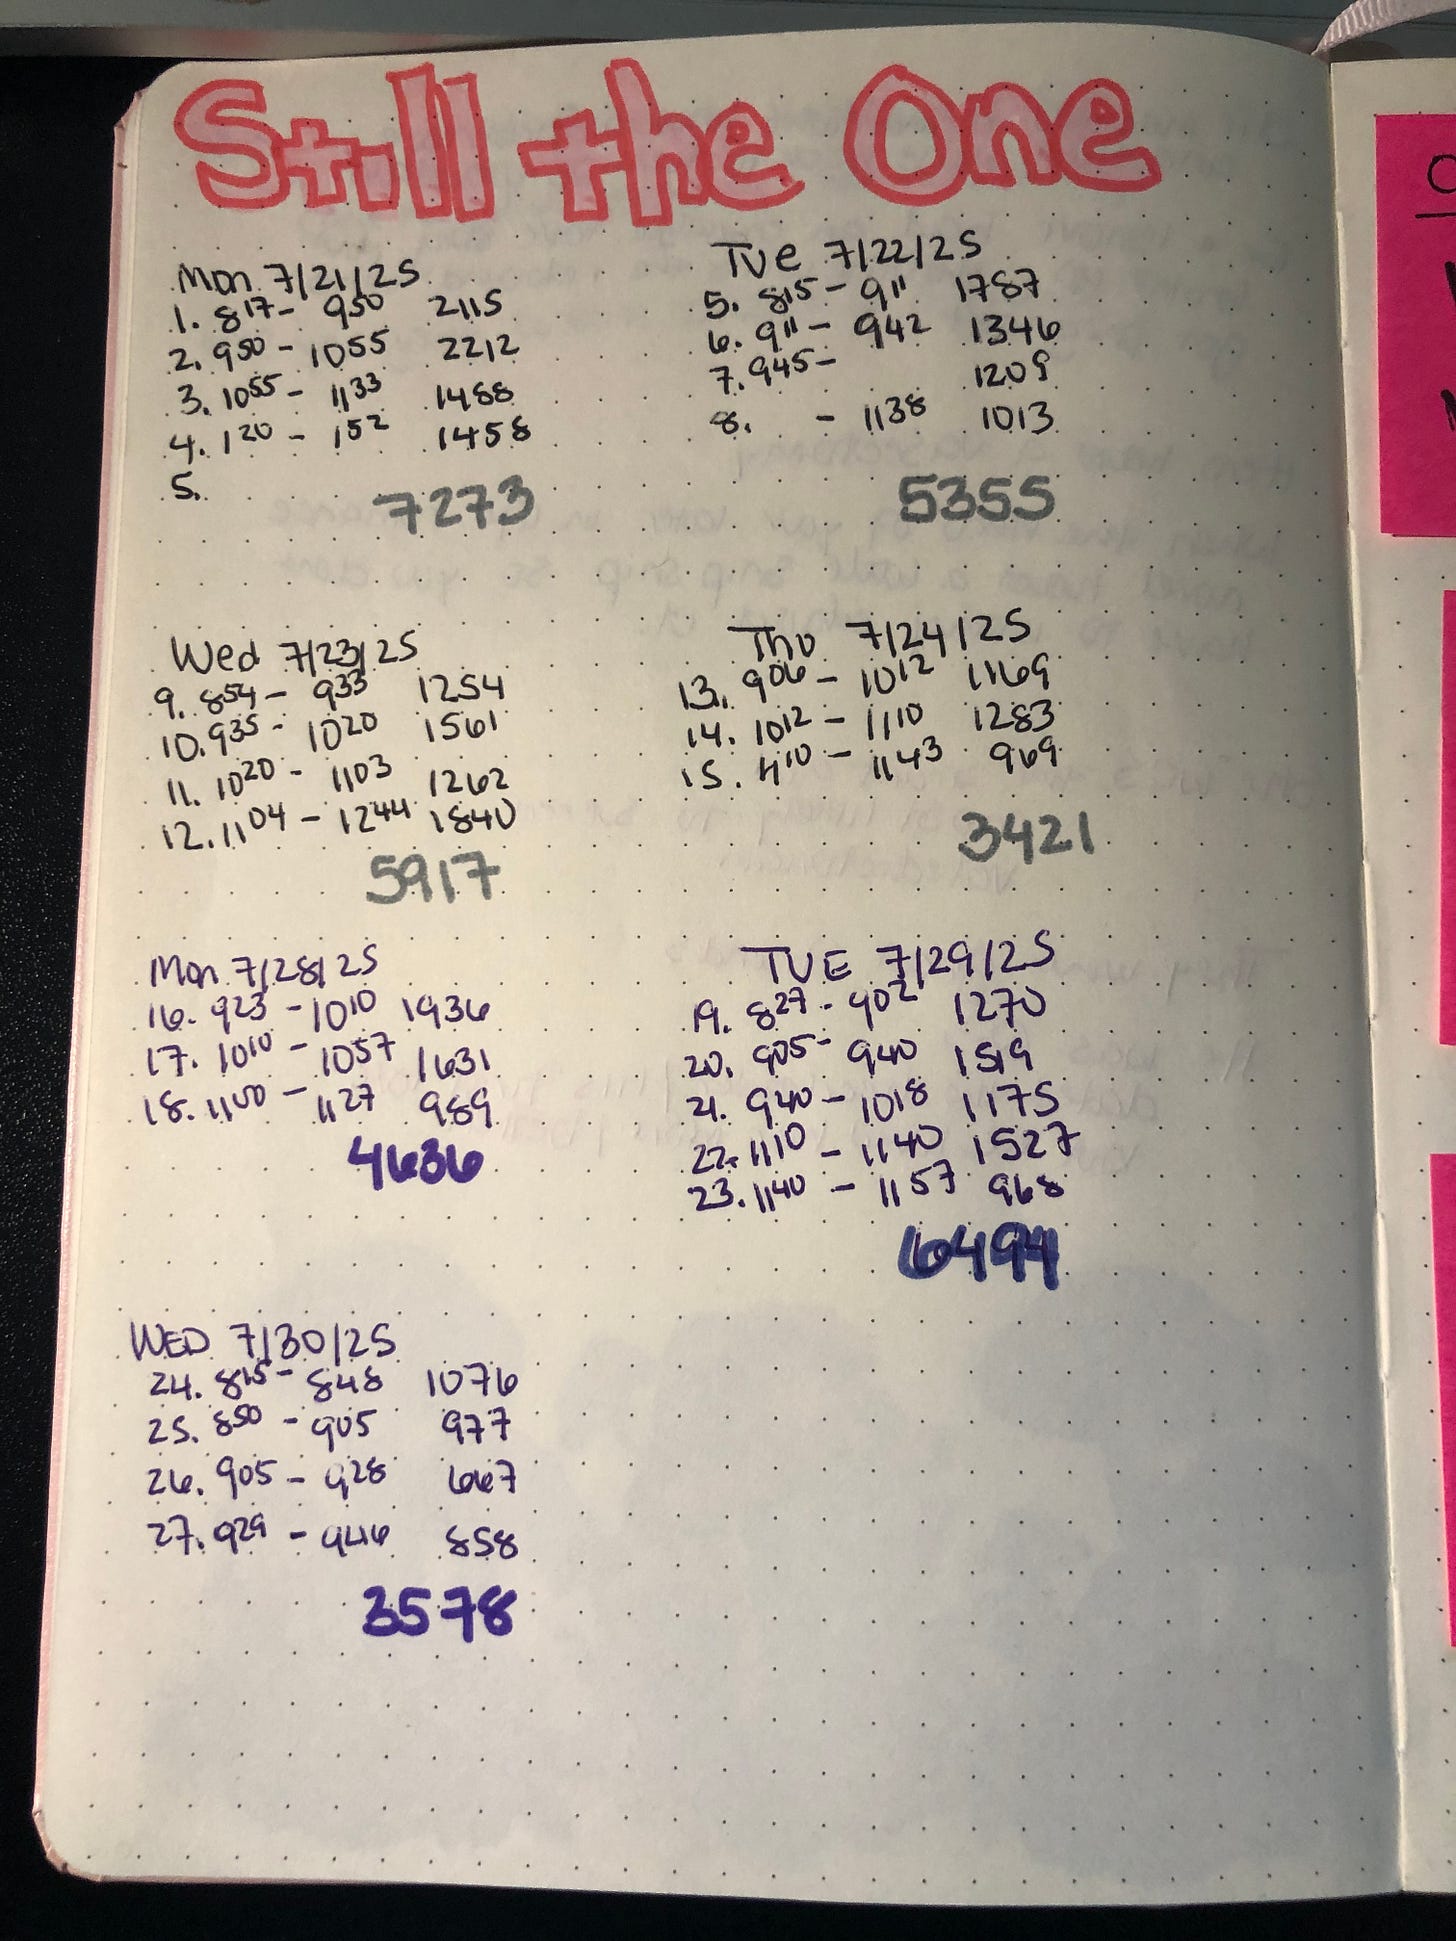 Still the One
Mon 7/21/25
1. 8¹⁷ - 9⁵⁰ 2115
2. 9⁵⁰ - 10⁵⁵ 2212
3. 10⁵⁵ - 11³³ 1488
4. 1²⁰ - 1⁵² 1458
5.
7273
Tue 7/22/25
5. 8¹⁵ - 9¹¹ 1787
6. 9¹¹ - 9⁴² 1346
7. 9⁴⁵ - 1209
8. - 11³⁸ 1013
5355
Wed 7/23/25
9. 8⁵⁴ - 9³³ 1254
10. 9³⁵ - 10²⁰ 1561
11. 10²⁰ - 11⁰³ 1262
12. 11⁰⁴ - 12⁴⁴ 1840
5917
Thu 7/24/25
13. 9⁰⁶ - 10¹² 1169
14. 10¹² - 11¹⁰ 1283
15. 11¹⁰ - 11⁴³ 969
3421
Mon 7/28/25
16. 9²³ - 10¹⁰ 1936
17. 10¹⁰ - 10⁵⁷ 1631
18. 11⁰⁰ - 11²⁷ 989
4636
TUE 7/29/25
19. 8²⁷ - 9⁰² 1270
20. 9⁰⁵ - 9⁴⁰ 1519
21. 9⁴⁰ - 10¹⁸ 1175
22. 11¹⁰ - 11⁴⁰ 1527
23. 11⁴⁰ - 11⁵⁷ 968
6494
WED 7/30/25
24. 8¹⁵ - 8⁴⁸ 1076
25. 8⁵⁰ - 9⁰⁵ 977
26. 9⁰⁵ - 9²⁸ 667
27. 9²⁹ - 9⁴⁶ 858
3578